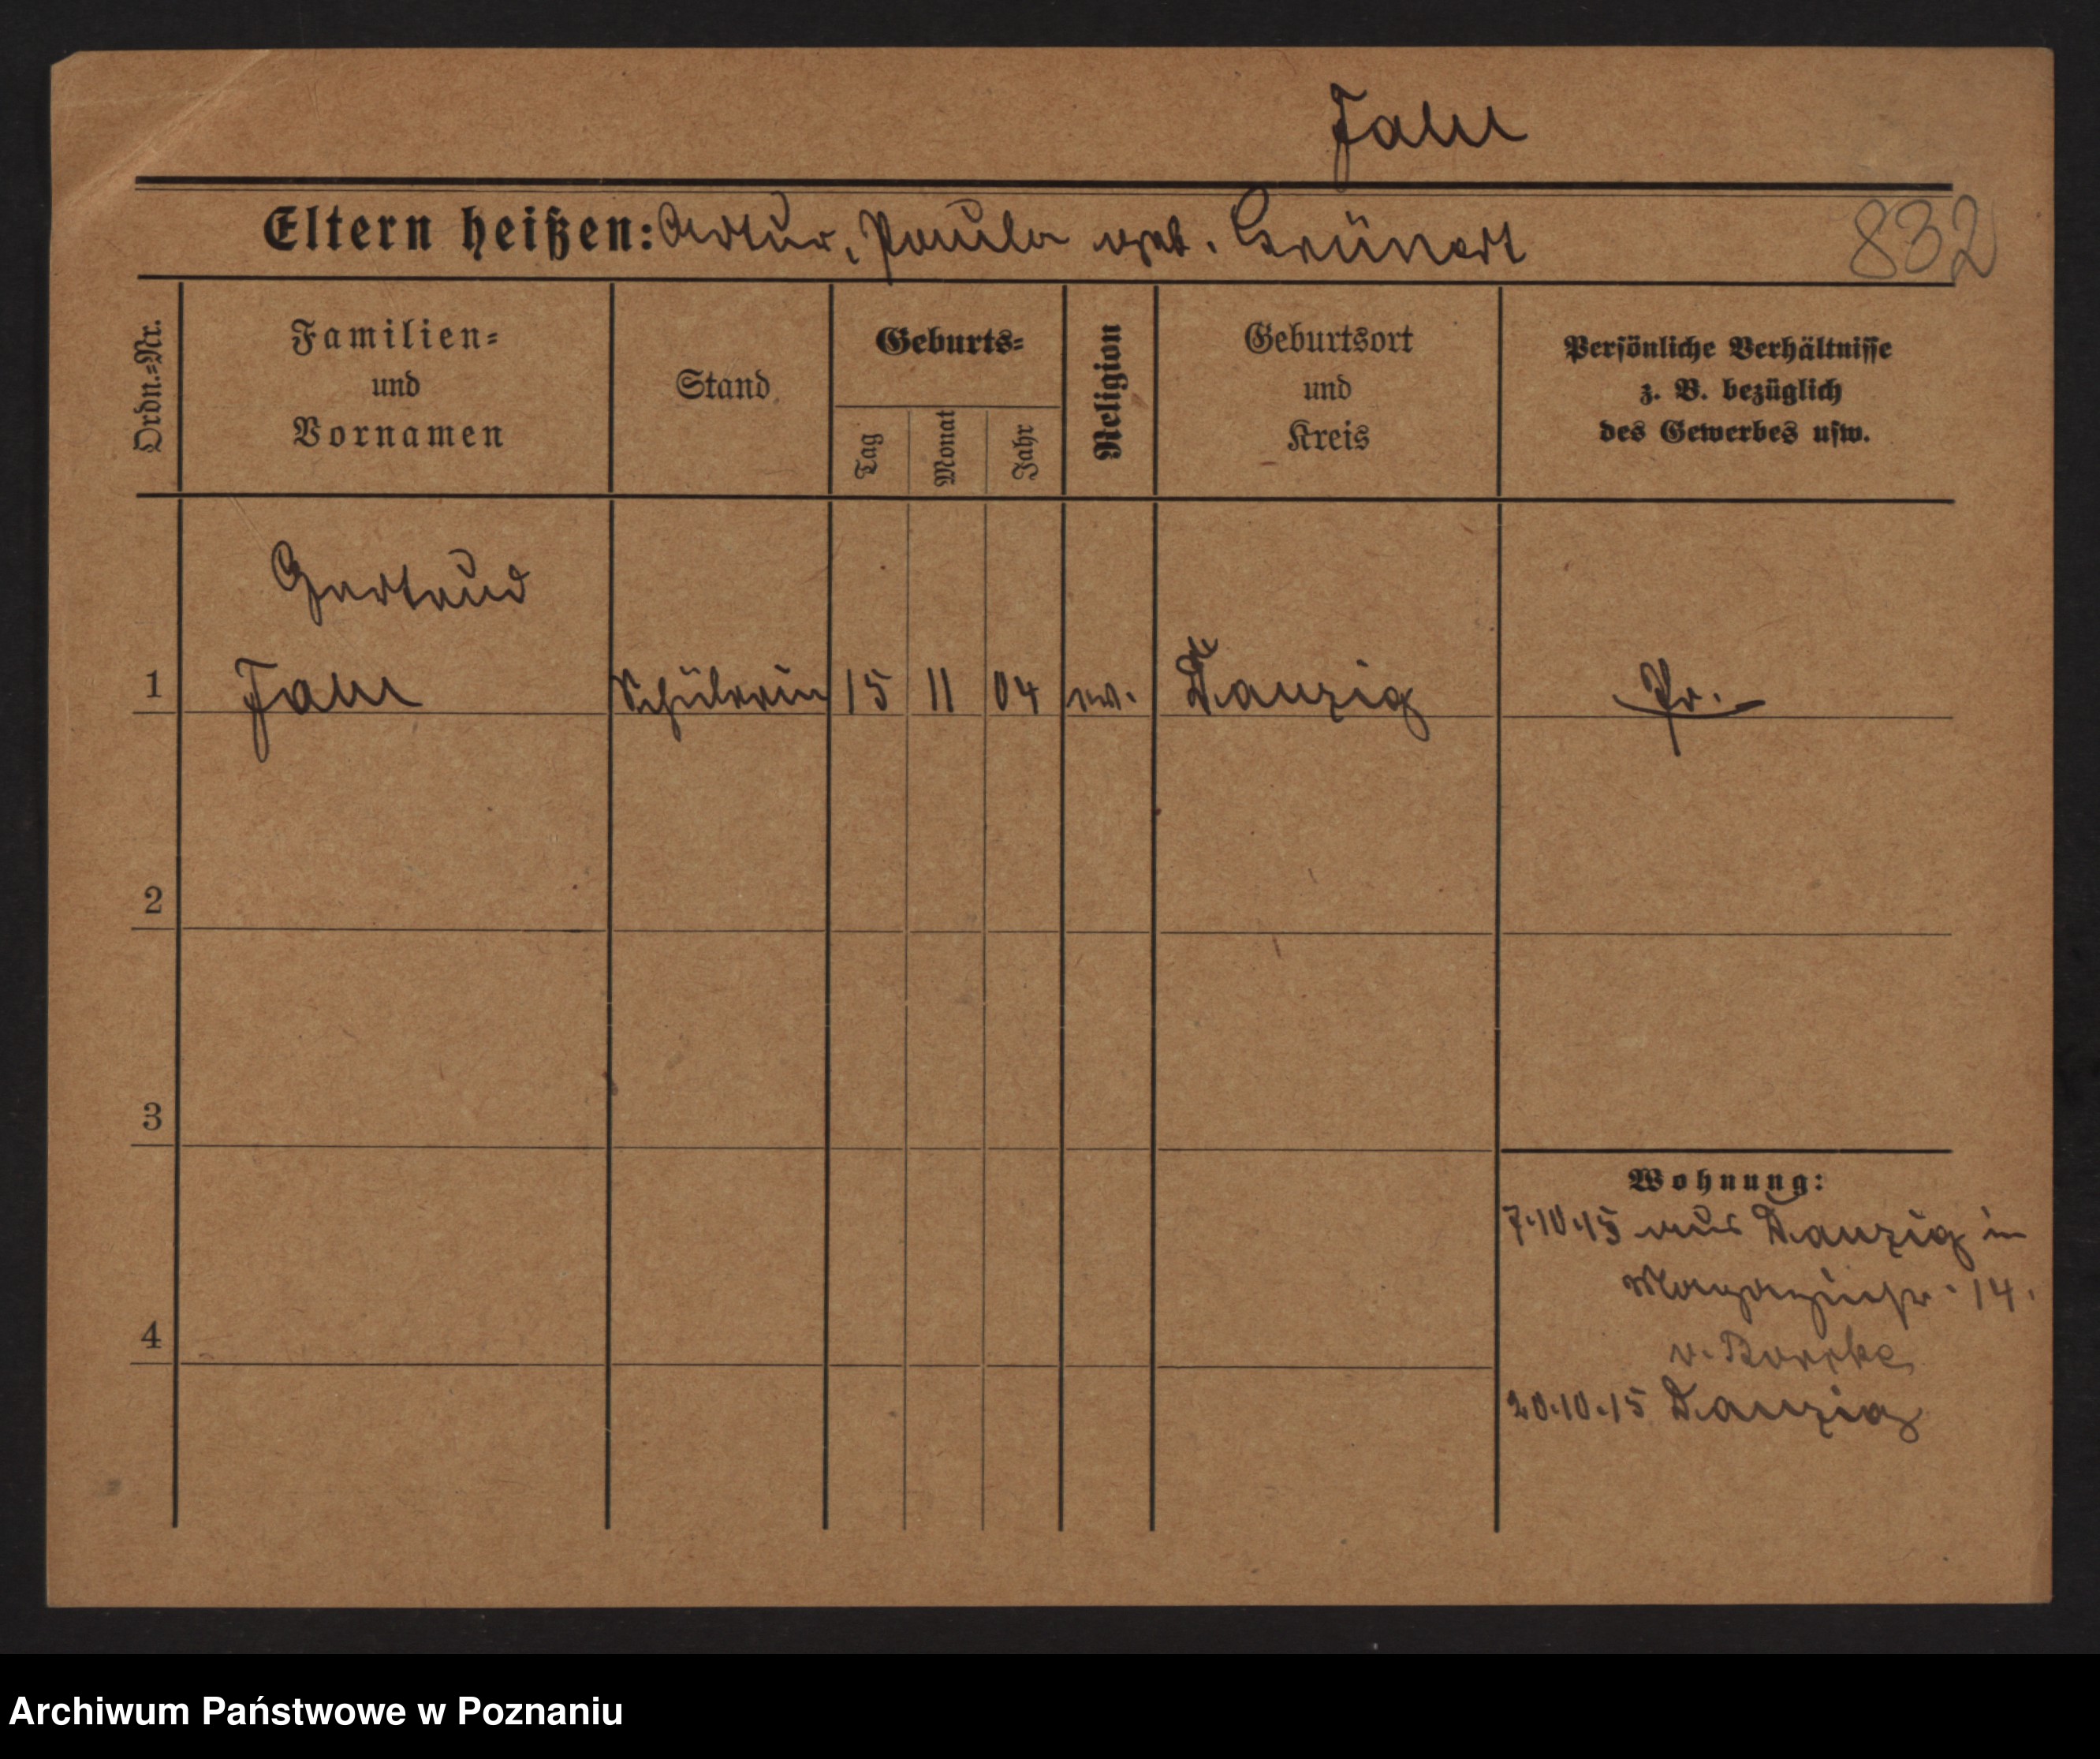 Jahr
Eltern heißen: Artur, Paula geb. Grünert
832
Ordn.-Nr.
Familien-
und
Vornamen
Stand
Geburts-
Tag
Monat
Jahr
Religion
Geburtsort
und
Kreis
Persönliche Verhältnisse
z. B. bezüglich
des Gewerbes usw.
Gertraud
1 Schülerin 15 11 04 ev. Danzig Pr.
2
3
Wohnung:
7.10.15 aus Danzig in
Magazinstr. 14.
4
v.
20.10.15 Danzig
Archiwum Państwowe w Poznaniu